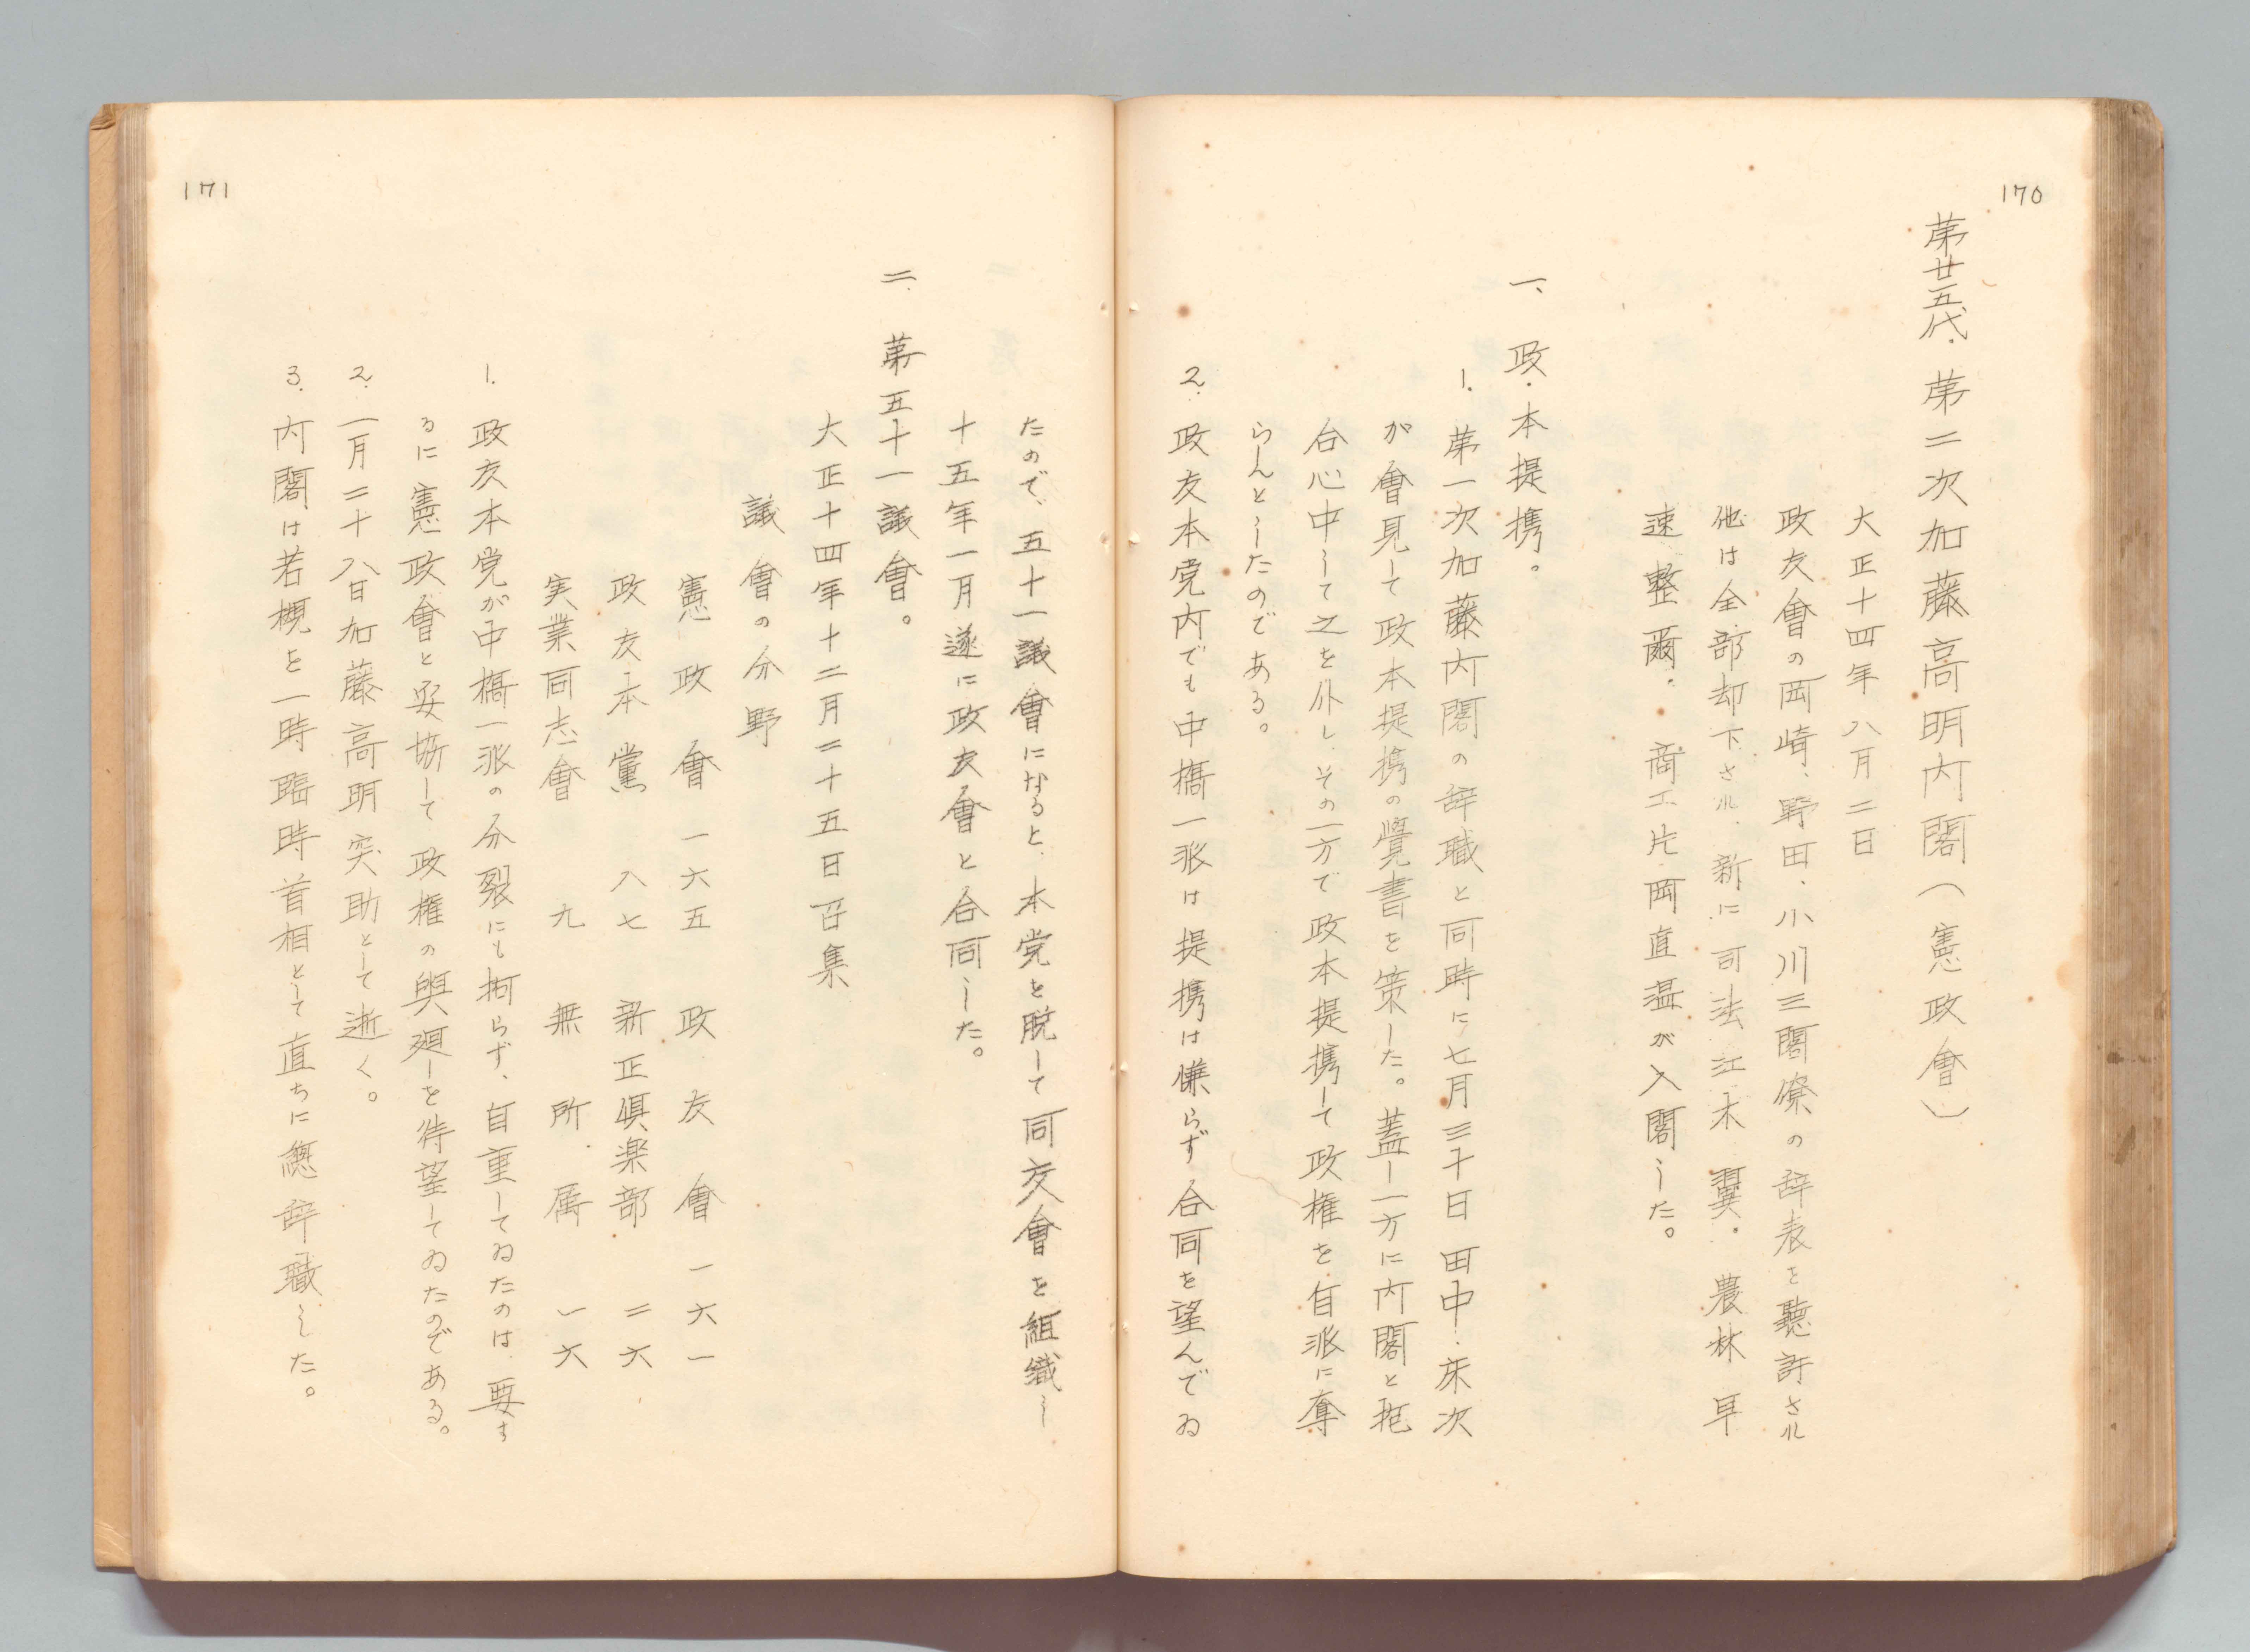 170
第廿五代・第二次加藤高明内閣(憲政會)
大正十四年八月二日
政友會の岡崎、野田、小川三閣僚の辞表を聴許され
他は全部却下され、新に司法江木翼・農林早
速整爾・商工片岡直温が入閣した。
一、政・本提携。
1. 第一次加藤内閣の辞職と同時に七月三十日田中・床次
が會見して政本提携の覺書を策した。蓋し一方に内閣と抱
合心中して之を外し、その一方で政本提携して政権を自派に奪
らんとしたのである。
2. 政友本党内でも中橋一派は提携は慊らず合同を望んでゐ
171
たので、五十一議會になると、本党を脱して同交會を組織し
十五年一月遂に政友會と合同した。
二、第五十一議會。
大正十四年十二月二十五日召集
議會の分野
憲政會 一六五 政友會 一六一
政友本黨 八七 新正倶楽部 二六
実業同志會 九 無所属 一六
1. 政友本党が中橋一派の分裂にも拘らず、自重してゐたのは、要す
るに憲政會と妥協して政権の與廻しを待望してゐたのである。
2. 一月二十八日加藤高明突助として逝く。
3. 内閣は若槻を一時臨時首相として直ちに總辞職した。